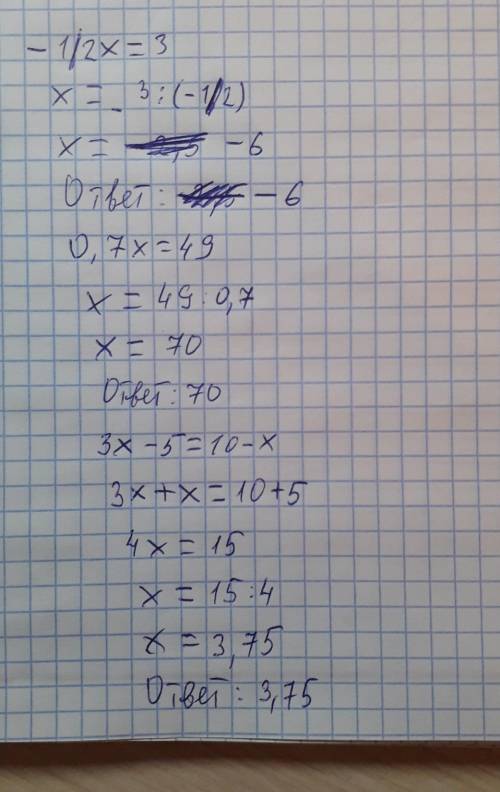 - 1/2x = 3
x = - 3 : (-1/2)
x = -6
Ответ: -6
0,7x = 49
x = 49 : 0,7
x = 70
Ответ: 70
3x - 5 = 10 - x
3x + x = 10 + 5
4x = 15
x = 15 : 4
x = 3,75
Ответ: 3,75